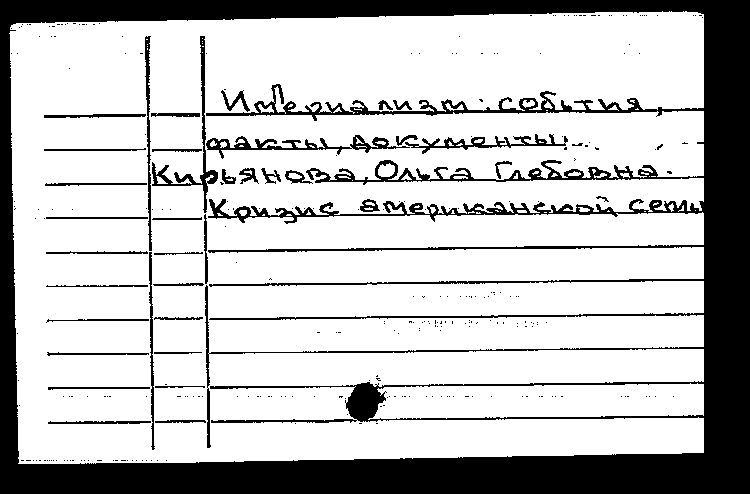 Империализм: события,
факты, документы...
Кирьянова, Ольга Глебовна.
Кризис американской семьи